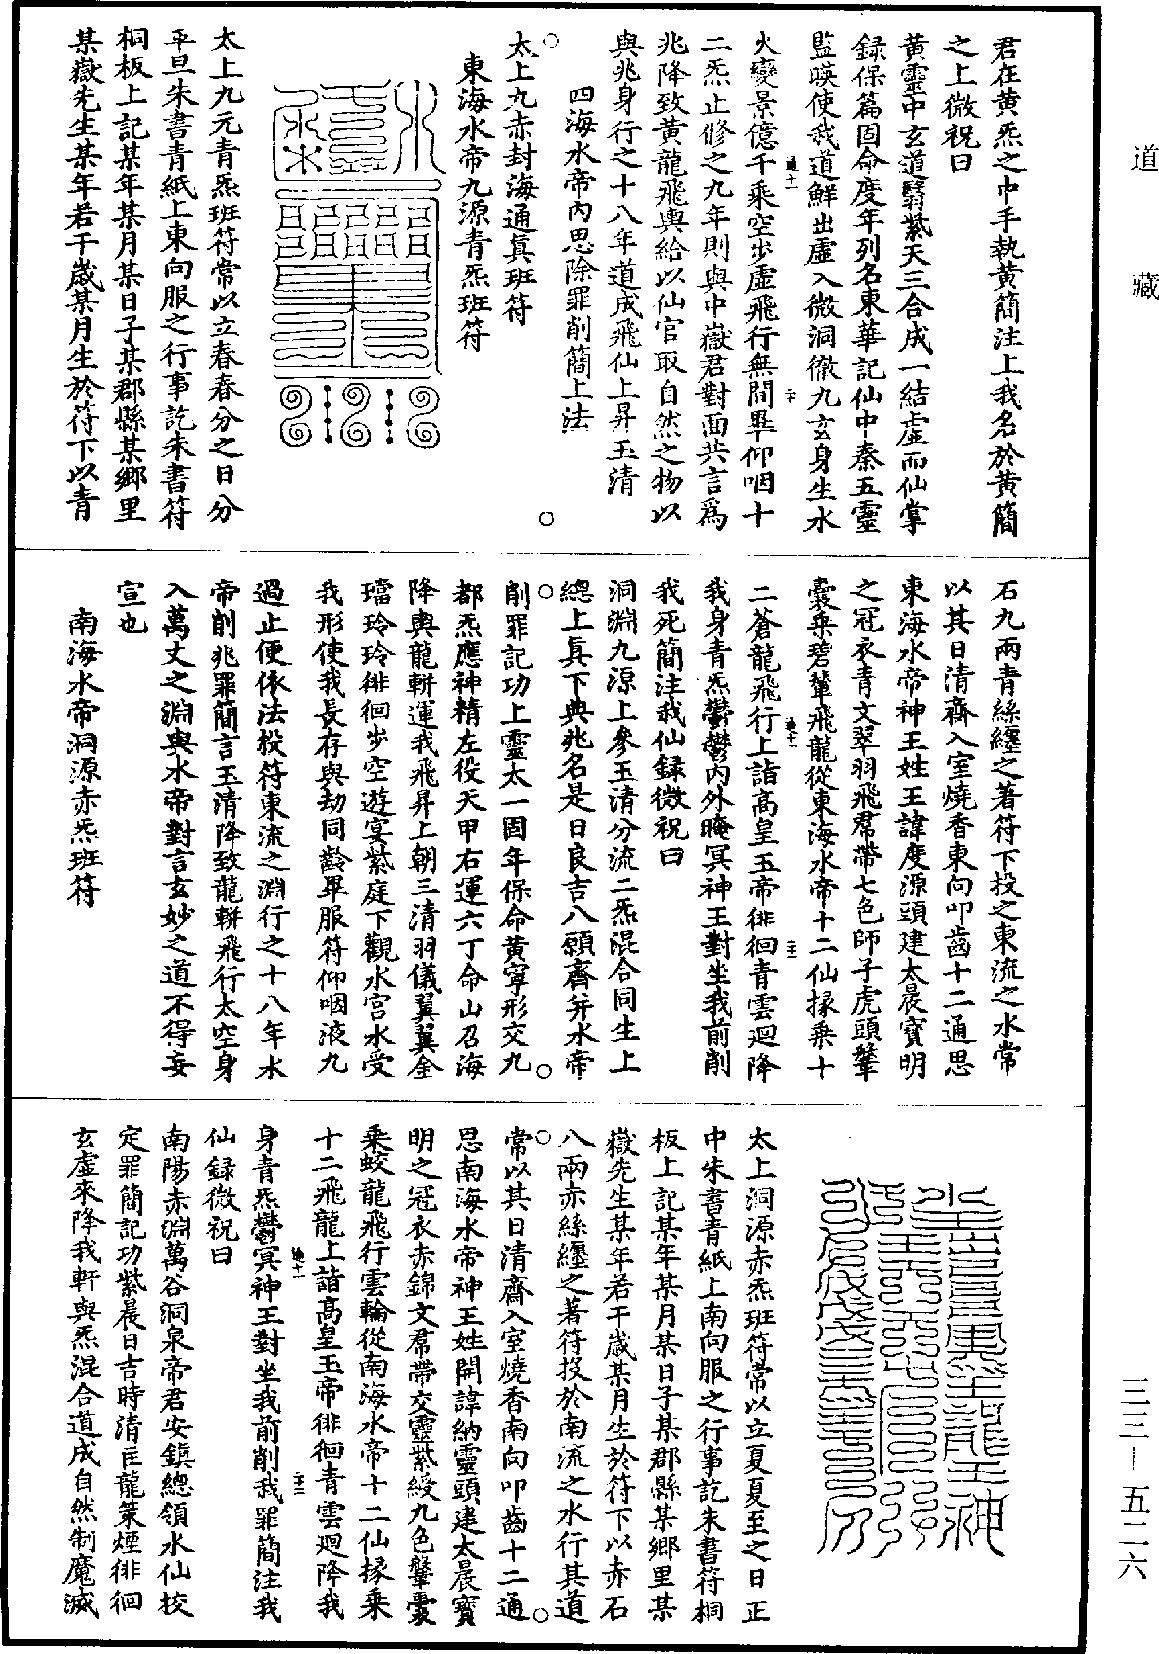 道藏
君在黄炁之中手執黄簡注上我名於黄簡
之上微祝曰
黄靈中玄道翳紫天三合成一結虛而仙掌
録保篇固命度年列名東華記仙中秦五靈
監暎使我道鮮出虛入微洞徹九玄身生水
火變景億千乘空步虛飛行無間畢仰咽十
二炁止修之九年則與中嶽君對面共言爲
兆降致黄龍飛輿給以仙官取自然之物以
與兆身行之十八年道成飛仙上昇玉清
四海水帝内思除罪削簡上法
太上九赤封海通真班符
東海水帝九源青炁班符
太上九元青炁班符常以立春春分之日分
平旦朱書青紙上東向服之行事訖朱書符
桐板上記某年某月某日子某郡縣某鄉里
某嶽先生某年若干歲某月生於符下以青
石九兩青絲纏之著符下投之東流之水常
以其日清齋入室燒香東向叩齒十二通思
東海水帝神王姓王諱度源頭建太晨寳明
之冠衣青文翠羽飛帬帶七色師子虎頭鞶
囊乘碧輦飛龍從東海水帝十二仙掾乘十
二蒼龍飛行上詣高皇玉帝徘徊青雲迴降
我身青炁鬱鬱内外晻冥神王對坐我前削
我死簡注我仙録微祝曰
洞淵九源上參玉清分流二炁混合同生上
總上真下典兆名是日良吉八願齊并水帝
削罪記功上靈太一固年保命黄寧形交九
都炁應神精左役天甲右運六丁命山召海
降輿龍軿運我飛昇上朝三清羽儀翼翼金
璫玲玲徘徊步空遊宴紫庭下觀水宫水受
我形使我長存與劫同齡畢服符仰咽液九
過止便依法投符東流之淵行之十八年水
帝削兆罪簡言玉清降致龍軿飛行太空身
入萬丈之淵與水帝對言玄妙之道不得妄
宣也
南海水帝洞源赤炁班符
太上洞源赤炁班符常以立夏夏至之日正
中朱書青紙上南向服之行事訖朱書符桐
板上記某年某月某日子某郡縣某鄉里某
嶽先生某年若干歲某月生於符下以赤石
八兩赤絲纏之著符投於南流之水行其道
常以其日清齋入室燒香南向叩齒十二通
思南海水帝神王姓開諱納靈頭建太晨寳
明之冠衣赤錦文帬帶交靈紫綬九色鞶囊
乘蛟龍飛行雲輪從南海水帝十二仙掾乘
十二飛龍上詣高皇玉帝徘徊青雲迴降我
身青炁鬱冥神王對坐我前削我罪簡注我
仙録微祝曰
南陽赤淵萬谷洞泉帝君安鎮總領水仙挍
定罪簡記功紫晨日吉時清巨龍策煙徘徊
玄虛來降我軒與炁混合道成自然制魔滅
三三—五二六